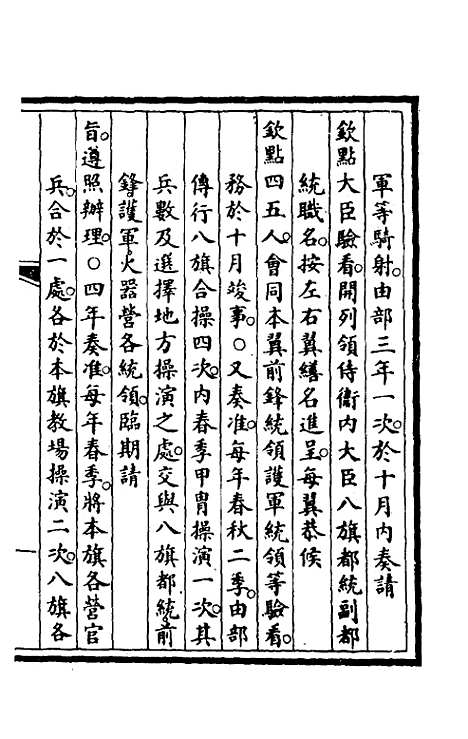 軍等騎射。由部三年一次。於十月內奏請
欽點大臣驗看。開列領侍衛內大臣八旗都統副都
統職名。按左右翼繕名進呈。每翼恭候
欽點四五人。會同本翼前鋒統領護軍統領等驗看。
務於十月竣事。○又奏准。每年春秋二季。由部
傳行八旗合操四次。內春季甲冑操演一次。其
兵數及選擇地方操演之處。交與八旗都統前
鋒護軍火器營各統領。臨期請
旨。遵照辦理。○四年奏准。每年春季。將本旗各營官
兵。合於一處。各於本旗教場操演二次。八旗各
一